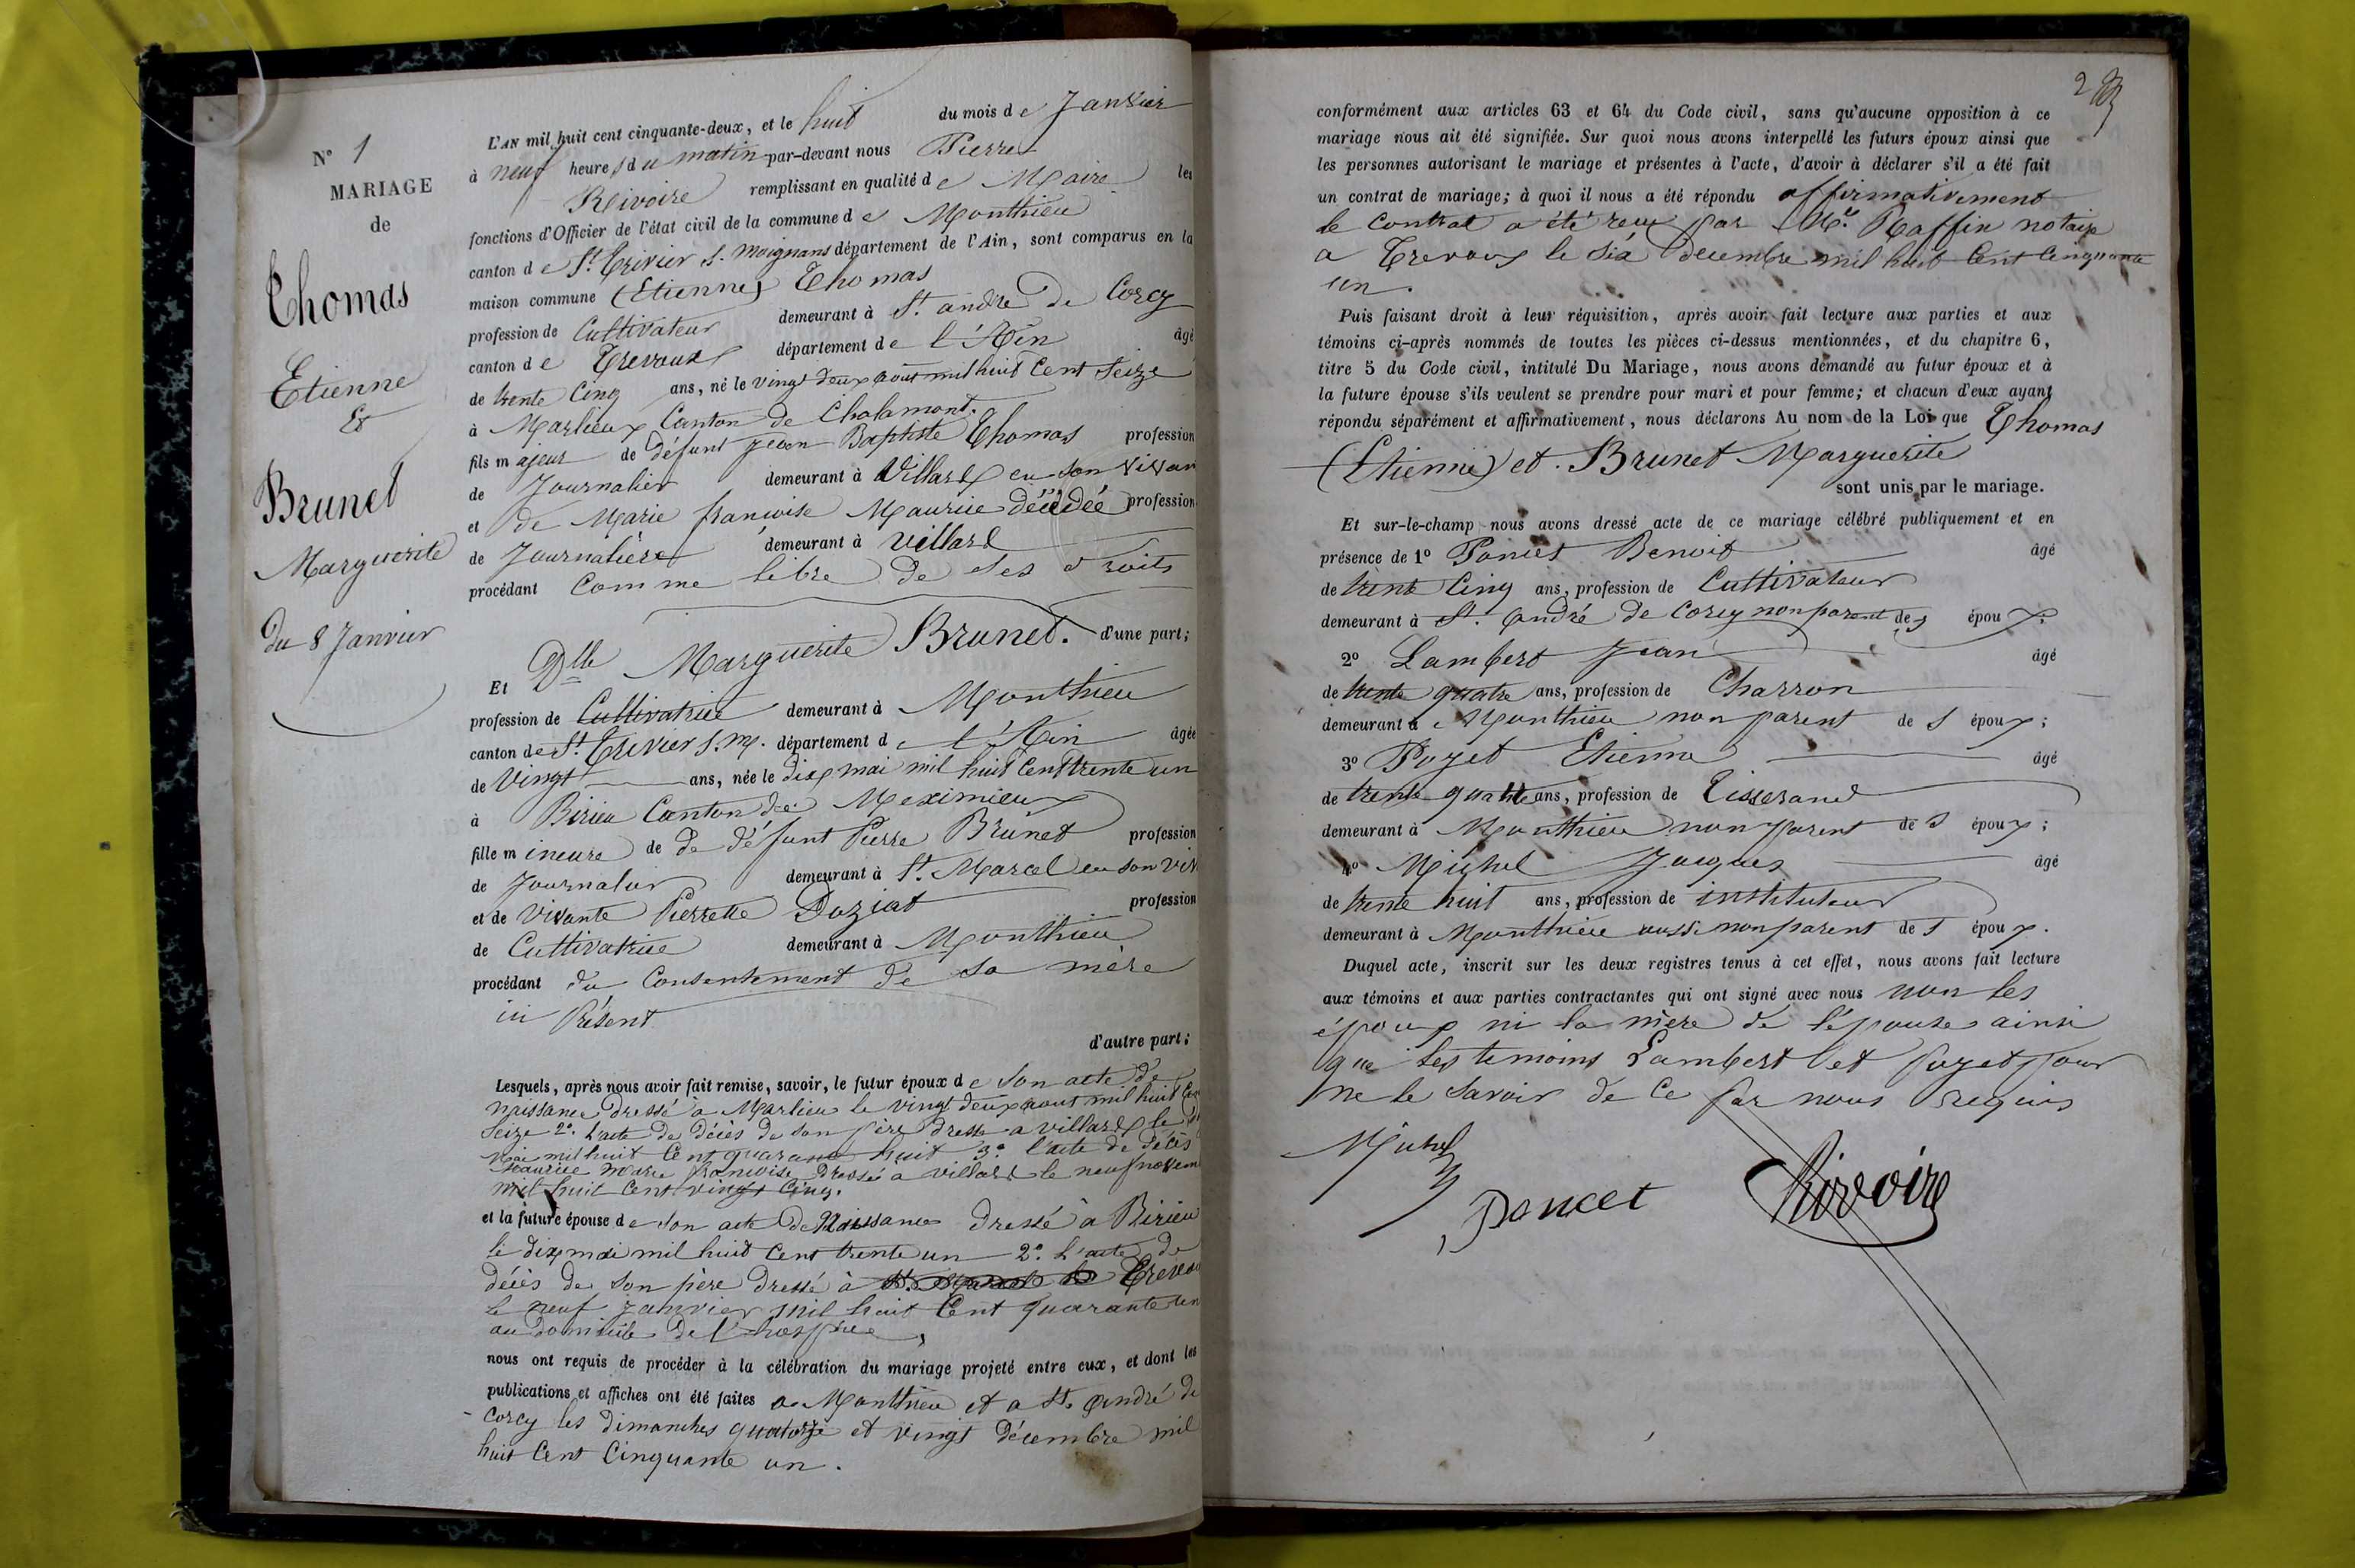 N° 1
MARIAGE
de
Thomas
Etienne
&
Brunet
Marguerite
Du 8 Janvier
L'AN mil huit cent cinquante-deux, et le huit du mois de Janvier
à neuf heures du matin par-devant nous Pierre
Rivoire remplissant en qualité de Maire les
fonctions d'Officier de l'état civil de la commune de Monthieu
canton de St. Trivier s. Moignans département de l'Ain, sont comparus en la
maison commune (Etienne) Thomas
profession de Cultivateur demeurant à St. andré de Corcy
canton de Trevoux département de l'Ain âgé
de trente Cinq ans, né le vingt deux aout mil huit Cent Seize
à Marlieux Canton de Chalamont.
fils majeur de défunt Jean Baptiste Thomas profession
de Journalier demeurant à Villard en son vivan
et de Marie francoise Mauriie décédée profession
de Journalière demeurant à villard
procédant Comme libre de ses droits
d'une part;
Et Dlle Marguerite Brunet.
profession de Cultivatrice demeurant à Monthieu
canton de St. Trivier s. m. département de l'Ain âgée
de Vingt ans, née le dix mai mil huit Cent trente un
à Birieu Canton de Meximieux
fille mineure de de défunt Pierre Brunet profession
de Journalier demeurant à St. Marcel en son viv
et de vivante Pierrette Duziat profession
de Cultivatrice demeurant à Monthieu
procédant du Consentement de sa mère
ici Présent
d'autre part;
Lesquels, après nous avoir fait remise, savoir, le futur époux de son acte de
naissance dressé à Marlieu le vingt deux aout mil huit Cen
Seize 2°. l'acte de décès de son père dressé a villard le
mai mil huit Cent quarante huit 3°. l'acte de décès
Mauriie Marie francoise dressé a villard le neuf novem
mil huit Cent vingt Cinq.
et la future épouse de son acte de Naissance dressé à Birieu
le dix mai mil huit Cent trente un 2°. l'acte de
décès de son père dressé à Trevou
le neuf janvier mil huit Cent quarante un
au domicile de l'hospice,
nous ont requis de procéder à la célébration du mariage projeté entre eux, et dont les
publications et affiches ont été faites a Monthieu et a St. André de
Corcy les dimanches quatorze et vingt décembre mil
huit Cent Cinquante un.
2
conformément aux articles 63 et 64 du Code civil, sans qu'aucune opposition à ce
mariage nous ait été signifiée. Sur quoi nous avons interpellé les futurs époux ainsi que
les personnes autorisant le mariage et présentes à l'acte, d'avoir à déclarer s'il a été fait
un contrat de mariage; à quoi il nous a été répondu affirmativement
le Contrat a été reçu par Me. Raffin notaire
a Trevoux le six decembre mil huit Cent Cinquante
un.
Puis faisant droit à leur réquisition, après avoir fait lecture aux parties et aux
témoins ci-après nommés de toutes les pièces ci-dessus mentionnées, et du chapitre 6,
titre 5 du Code civil, intitulé Du Mariage, nous avons demandé au futur époux et à
la future épouse s'ils veulent se prendre pour mari et pour femme; et chacun d'eux ayant
répondu séparément et affirmativement, nous déclarons Au nom de la Loi que Thomas
(Etienne) et Brunet Marguerite
sont unis par le mariage.
Et sur-le-champ nous avons dressé acte de ce mariage célébré publiquement et en
présence de 1° Poncet Benoit âgé
de trente Cinq ans, profession de Cultivateur
demeurant à St. André de Corcy non parent des époux.
2° Lambert Jean âgé
de trente quatre ans, profession de Charron
demeurant à Monthieu non parent des époux;
3° Puzet Etienne âgé
de trente quatre ans, profession de Tisserand
demeurant à Monthieu non parent des époux;
4° Michel Jacques âgé
de trente huit ans, profession de instituteur
demeurant à Monthieu aussi non parent des époux.
Duquel acte, inscrit sur les deux registres tenus à cet effet, nous avons fait lecture
aux témoins et aux parties contractantes qui ont signé avec nous non les
époux ni la mère de l'épouse ainsi
que les temoins Lambert et Puzet pour
ne le savoir de ce par nous requis
Michel
Poncet
Rivoire